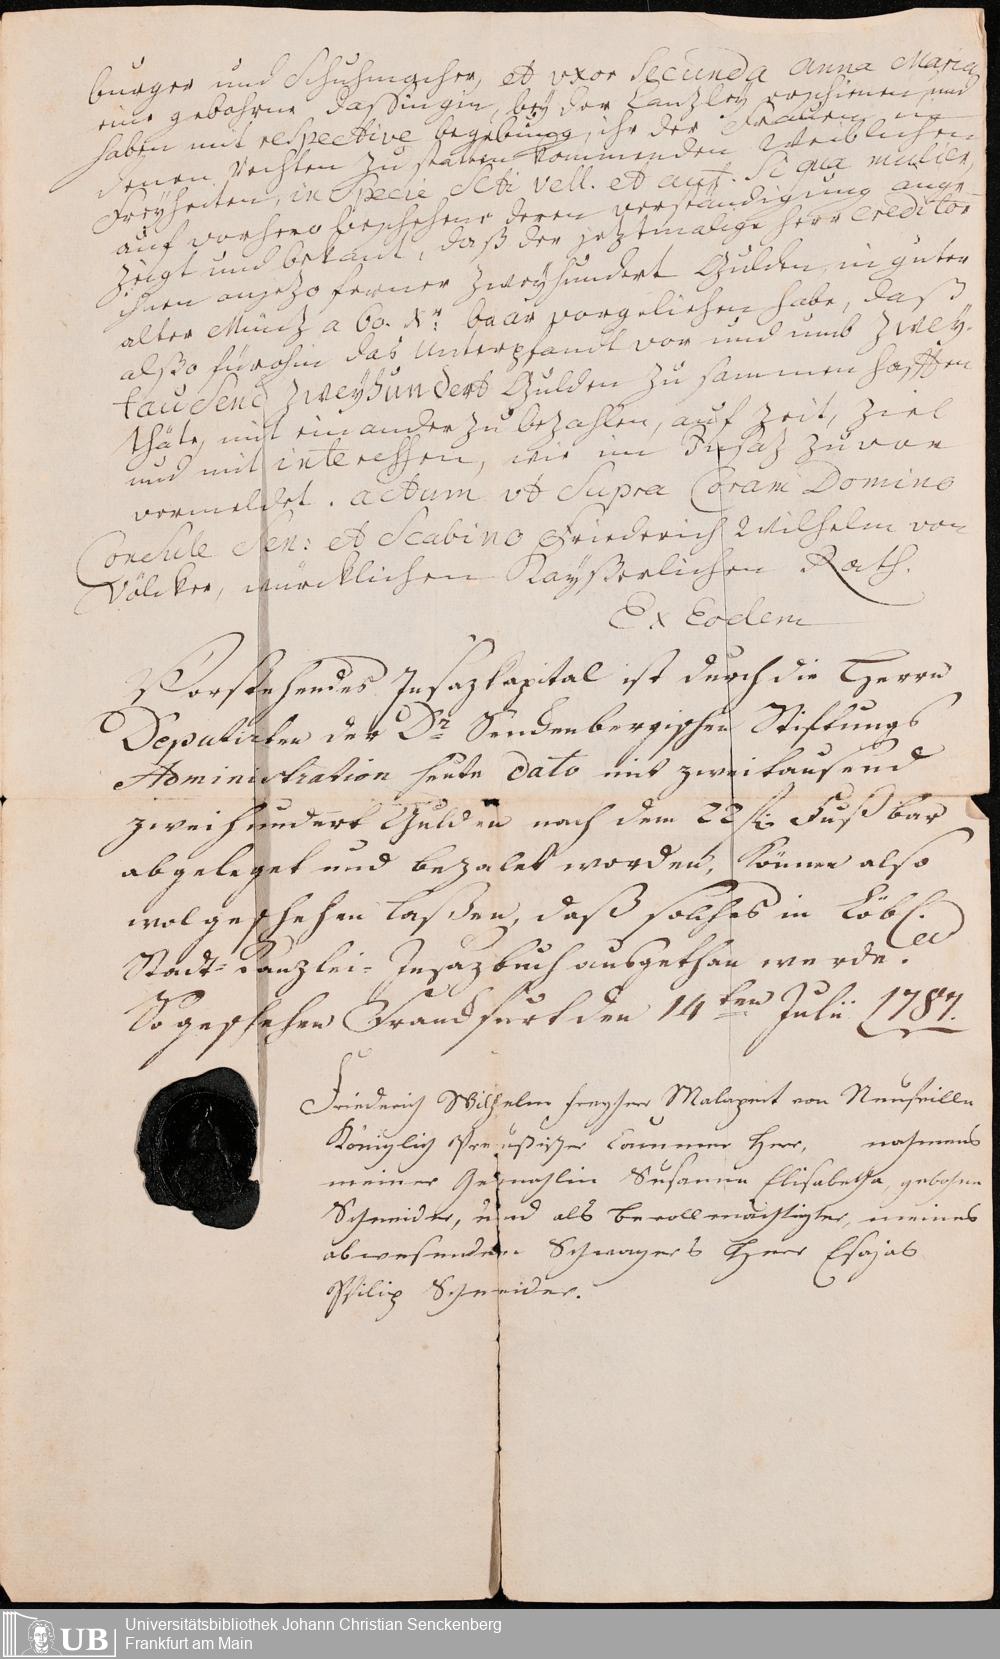 burger und Schuhmacher, et uxor Secunda Anna Maria
eine gebohrne Dassingin, bey der Canzley erschienen, und
haben mit respective begebung, ihr der Frauen in
denen Rechten zu statten kommenden Weiblichen
Freyheiten, in Specie Scti vell. et auth. Si qua mulier,
auf vorhero beschehene deren verständigung ange-
zeigt und bekant, daß der jeztmalige Herr Creditor
ihnen anjezo ferner zweyhundert Gulden, in guter
alter Müntz a 60. Xr. baar vorgeliehen habe, daß
alßo fürohin das Unterpfandt vor und umb zwey-
tausend zweyhundert Gulden zusammen hafften
thäte, mit einander zu bezahlen, auf Zeit, Ziel
und mit interessen, wie im Insaz zuvor
vermeldet. Actum ut Supra Coram Domino
Consule Sen: et Scabino Friederich Wilhelm von
Völcker, würcklichen Kayßerlichen Rath.
Ex Eodem
Vorstehendes Insazkapital ist durch die Herrn
Deputirten der Dr. Senckenbergischen Stiftungs
Administration heute dato mit zweitausend
zweihundert Gulden nach dem 22 fl. Fuß bar
abgeleget und bezalet worden, können also
wol geschehen laßen, daß solches in Löbl.
Stadt-Kanzlei-Insazbuch ausgethan werde.
So geschehen Franckfurt den 14ten Julii 1787.
Friederich Wilhelm Freyherr Malapert von Neufville
Königlich Preußischer Cammer Herr, nahmens
meiner Gemahlin Susanna Elisabetha, gebohrne
Schneider, und als bevollmächtigter, meines
abwesenden Schwagers Herr Esajas
Philip Schneider.
UB
Universitätsbibliothek Johann Christian Senckenberg
Frankfurt am Main